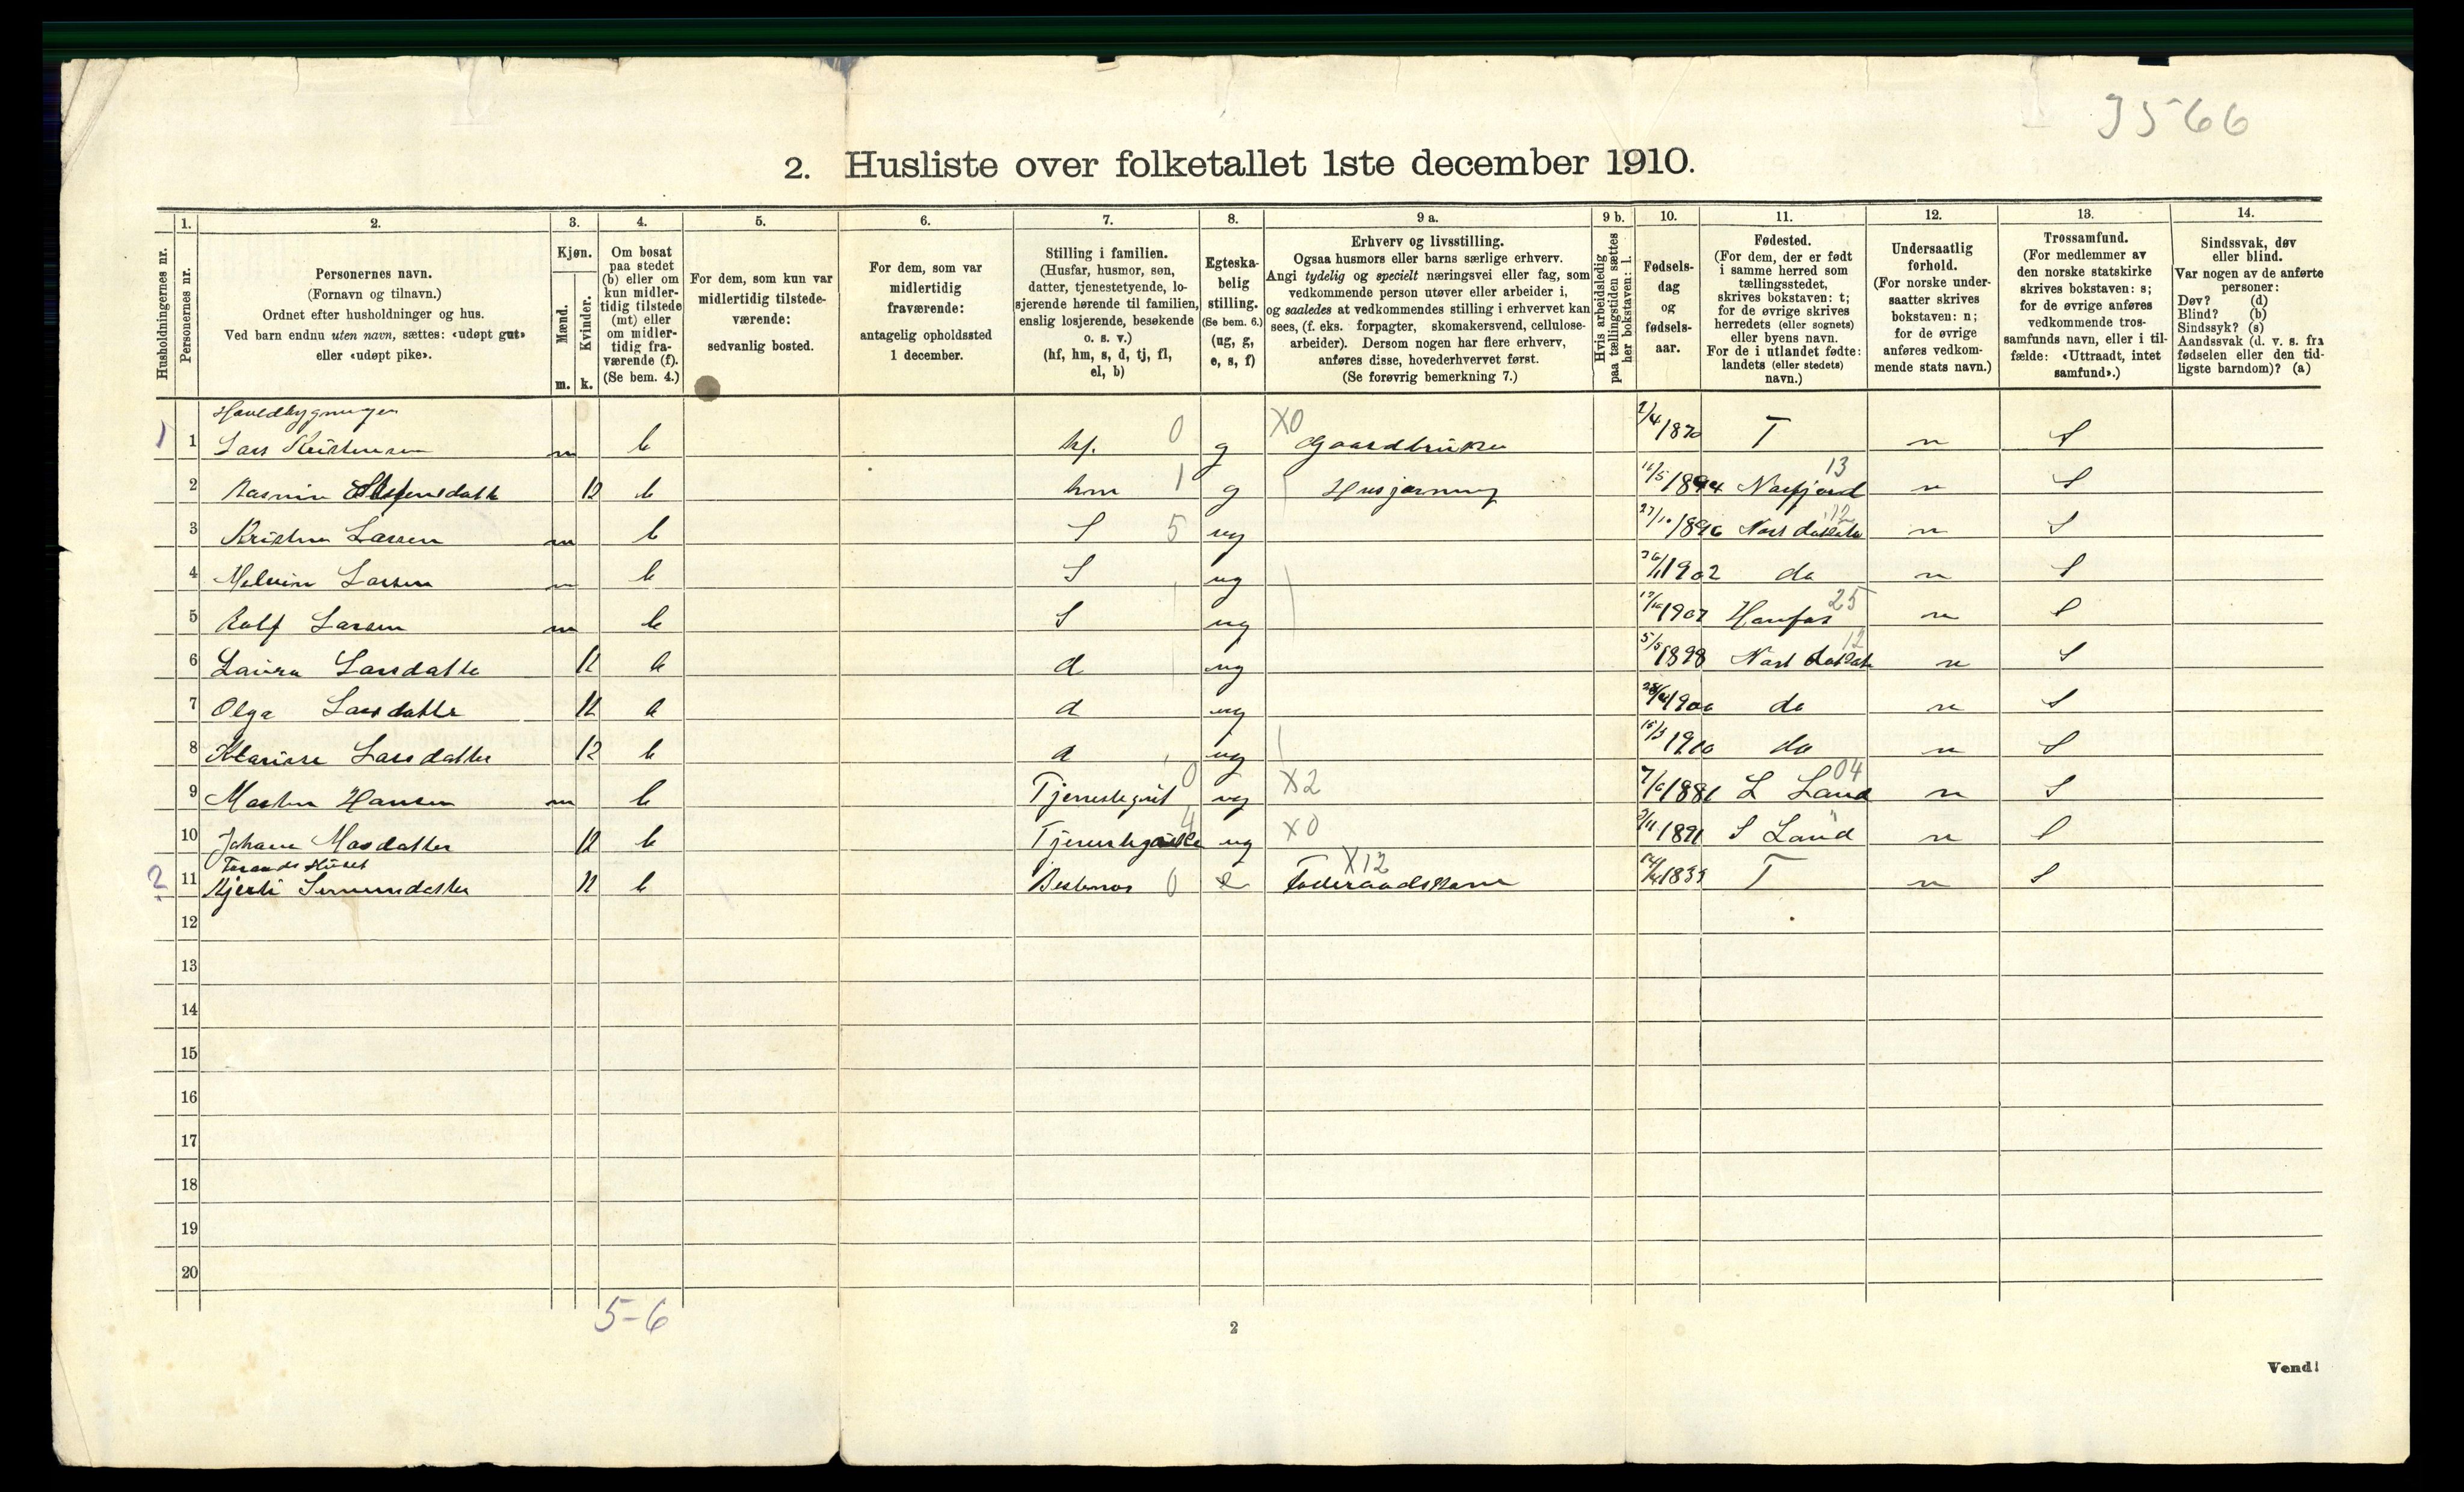 3566
2. Husliste over folketallet 1ste december 1910.
1. 2. 3. 4. 5. 6. 7. 8. 9 a. 9 b. 10. 11. 12. 13. 14.
Husholdningernes nr.
Personernes nr.
Personernes navn.
(Fornavn og tilnavn.)
Ordnet efter husholdninger og hus.
Ved barn endnu uten navn, sættes: «udøpt gut»
eller «udøpt pike».
Kjøn.
Mænd.
m.
Kvinder.
k.
Om bosat
paa stedet
(b) eller om
kun midler-
tidig tilstede
(mt) eller
om midler-
tidig fra-
værende (f).
(Se bem. 4.)
For dem, som kun var
midlertidig tilstede-
værende:
sedvanlig bosted.
For dem, som var
midlertidig
fraværende:
antagelig opholdssted
1 december.
Stilling i familien.
(Husfar, husmor, søn,
datter, tjenestetyende, lo-
sjerende hørende til familien,
enslig losjerende, besøkende
o. s. v.)
(hf, hm, s, d, tj, fl,
el, b)
Egteska-
belig
stilling.
(Se bem. 6.)
(ug, g,
e, s, f)
Erhverv og livsstilling.
Ogsaa husmors eller barns særlige erhverv.
Angi tydelig og specielt næringsvei eller fag, som
vedkommende person utøver eller arbeider i,
og saaledes at vedkommendes stilling i erhvervet kan
sees, (f. eks. forpagter, skomakersvend, cellulose-
arbeider). Dersom nogen har flere erhverv,
anføres disse, hovederhvervet først.
(Se forøvrig bemerkning 7.)
Hvis arbeidsledig
paa tællingstiden sættes
her bokstaven: l.
Fødsels-
dag
og
fødsels-
aar.
Fødested.
(For dem, der er født
i samme herred som
tællingsstedet,
skrives bokstaven: t;
for de øvrige skrives
herredets (eller sognets)
eller byens navn.
For de i utlandet fødte:
landets (eller stedets)
navn.)
Undersaatlig
forhold.
(For norske under-
saatter skrives
bokstaven: n;
for de øvrige
anføres vedkom-
mende stats navn.)
Trossamfund.
(For medlemmer av
den norske statskirke
skrives bokstaven: s;
for de øvrige anføres
vedkommende tros-
samfunds navn, eller i til-
fælde: «Uttraadt, intet
samfund».)
Sindssvak, døv
eller blind.
Var nogen av de anførte
personer:
Døv? (d)
Blind? (b)
Sindssyk? (s)
Aandssvak (d. v. s. fra
fødselen eller den tid-
ligste barndom)? (a)
Hovedbygningen
1 1 Lars Kristensen m b hf. 0 g X0 Gaardbruker 1870 T n S
2 k b hm 1 g Husgjerning 16/5 13 n S
3 Kristen Larsen m b S 5 ug 27/10 1896 12 n S
4 Melvin Larsen m b S ug 1902 do n S
5 Rolf Larsen m b S ug 1907 25 n S
6 Laura Larsdatter k b d ug 5/5 1898 12 n S
7 Olga Larsdatter k b d ug 1900 do n S
8 Larsdatter k b d ug 1910 do n S
9 Hansen m b Tjenestegut 0 ug X2 1881 Land 04 n S
10 Johane k b 4 ug X0 1891 S Land n S
2 11 Kjersti k b Bestemor 0 e X12 Føderaadskone T n S
12
13
14
15
16
17
18
19
20
5-6
2
Vend!